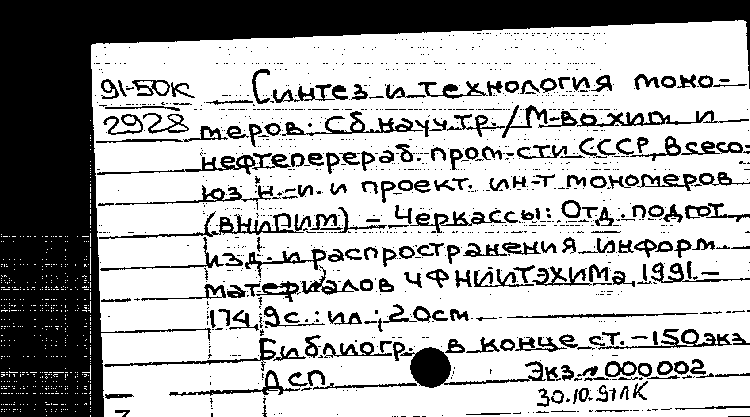 91-50К Синтез и технология моно-
2928 меров: Сб.науч.тр./М-во хим. и
нефтеперераб. пром-сти СССР, Всесо-
юз н.-и. и проект. ин-т мономеров
(ВНИПИМ) – Черкассы: Отд. подгот.,
изд. и распространения информ.
материалов ЧФНИИТЭХИМа, 1991.–
174,9с.: ил.; 20см.
Библиогр. в конце ст. – 150экз
ДСП. Экз.№000002.
30.10.91ЛК